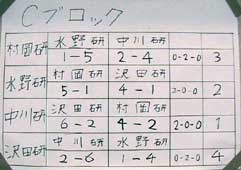 Cブロック
村岡研 水野研 中川研
1-5 2-4 0-2-0 3
水野研 村岡研 沢田研
5-1 4-1 2-0-0 2
中川研 沢田研 村岡研
6-2 4-2 2-0-0 1
沢田研 中川研 水野研
2-6 1-4 0-2-0 4